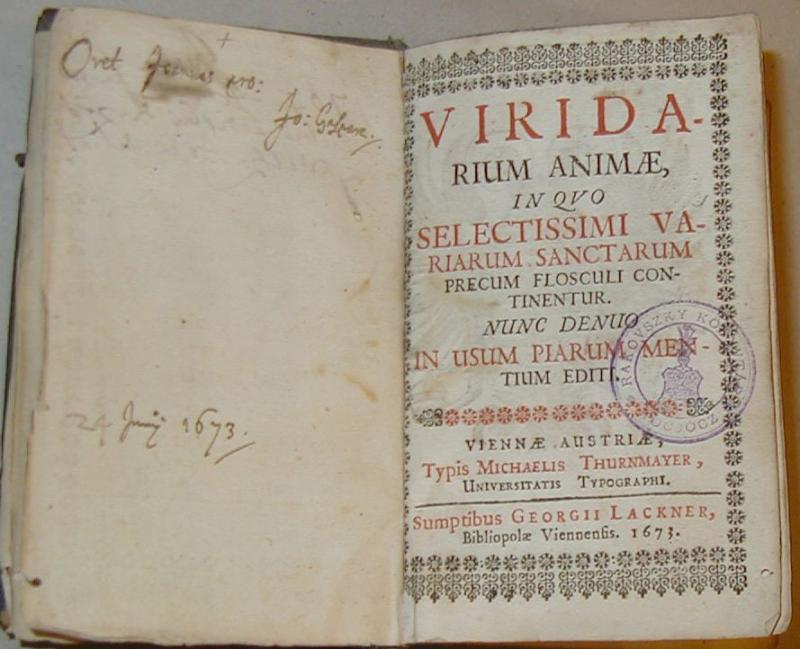 Oret
pro:
Jo:
24 Junij 1673.
VIRIDA-
RIUM ANIMÆ,
IN QVO
SELECTISSIMI VA-
RIARUM SANCTARUM
PRECUM FLOSCULI CON-
TINENTUR.
NUNC DENUO
IN USUM PIARUM MEN-
TIUM EDITI.
VIENNÆ AUSTRIÆ,
Typis MICHAELIS THURNMAYER,
UNIVERSITATIS TYPOGRAPHI.
Sumptibus GEORGII LACKNER,
Bibliopolæ Viennensis. 1673.
RAKOVSZKY